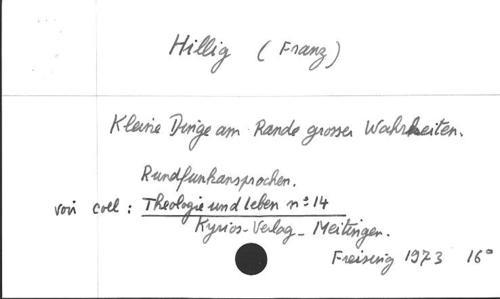 Hillig (Franz)
Kleine Dinge am Rande grosser Wahrheiten.
Rundfunkansprachen.
voir coll : Theologie und Leben n° 14
Kyrios-Verlag - Meitingen.
Freising 1973 16°